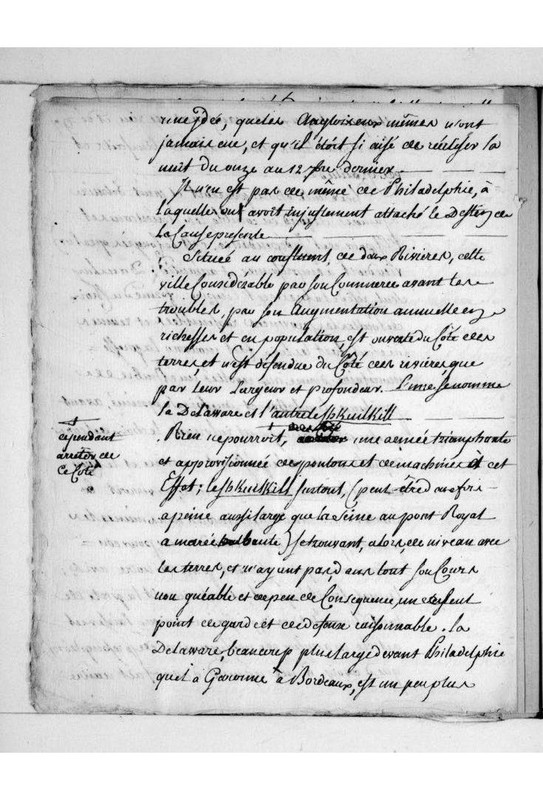 que les Anglois eux mêmes n'ont
jamais eue, et qu'il étoit si aisé de réaliser la
nuit du onze au 12 dernier
Il n'en est pas de même de Philadelphie, à
laquelle on avoit injustement attaché le Destin de
la Cause présente
Située au confluent de deux Rivières, cette
ville Considérable par son Commerce avant les
troubles, par son Augmentation annuelle en
richesses et en population, est ouverte du Côté des
terres et n'est défendue du Côté des rivières que
par leur Largeur et profondeur. L'une se nomme
la Delaware et l'autre le Shkuilkill
Rien ne pourroit, une armée triomphante
cependant
arrêter de
ce Côté
et approvisionnée de pontons et de machines à cet
Effet; le Shkuilkill surtout, (peut être deux fois
à peine aussi large que la Seine au pont Royal
a marée haute) se trouvant, alors, de niveau avec
les terres, et n'ayant pas, dans tout son Cours
non guéable et de peu de Conséquence, un seul
point de garde et de défense raisonnable. La
Delaware, beaucoup plus large devant Philadelphie
que la Garonne à Bordeaux, est un peu plus